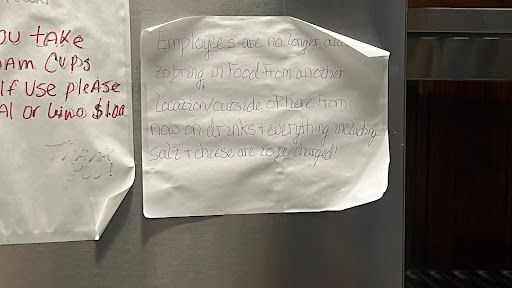 ou take
am cups
lf use please
al or wino $1.00
Thank
you!
Employee's are no longer
to bring in food from another
location/outside of here. From
now on drinks + everything including
salt + cheese are to be charged!